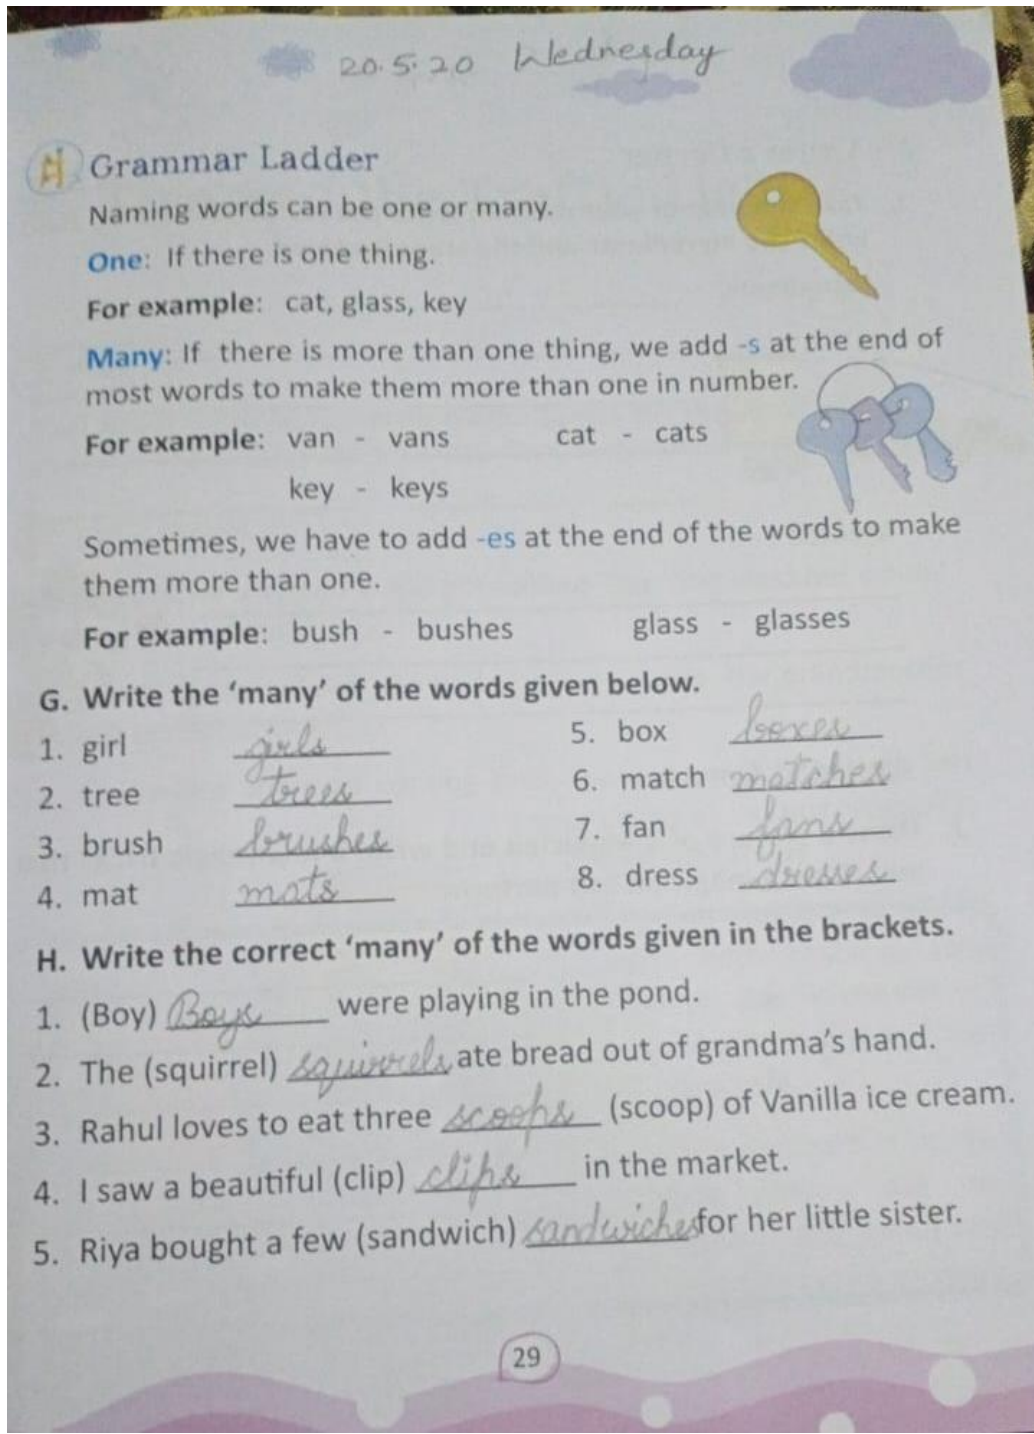 20.5.20 Wednesday
Grammar Ladder
Naming words can be one or many.
One: If there is one thing.
For example: cat, glass, key
Many: If there is more than one thing, we add -s at the end of
most words to make them more than one in number.
For example: van - vans cat - cats
key - keys
Sometimes, we have to add -es at the end of the words to make
them more than one.
For example: bush - bushes glass - glasses
G. Write the ‘many’ of the words given below.
1. girl girls 5. box boxes
2. tree trees 6. match matches
3. brush brushes 7. fan fans
4. mat mats 8. dress dresses
H. Write the correct ‘many’ of the words given in the brackets.
1. (Boy) Boys were playing in the pond.
2. The (squirrel) squirrels ate bread out of grandma’s hand.
3. Rahul loves to eat three scoops (scoop) of Vanilla ice cream.
4. I saw a beautiful (clip) clips in the market.
5. Riya bought a few (sandwich) sandwiches for her little sister.
29